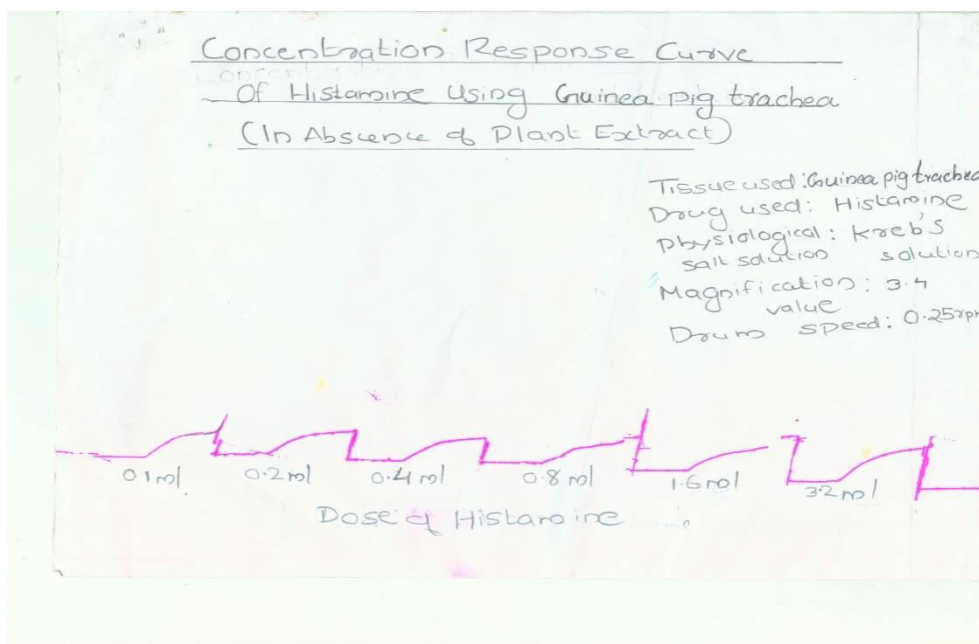 Concentration Response Curve
Of Histamine Using Guinea pig trachea
(In Absence of Plant Extract)
Tissue used: Guinea pig trachea
Drug used: Histamine
Physiological: Kreb's
salt solution solution
Magnification: 3.4
value
Drum speed: 0.25rpm
0.1ml 0.2ml 0.4ml 0.8ml 1.6ml 3.2ml
Dose of Histamine